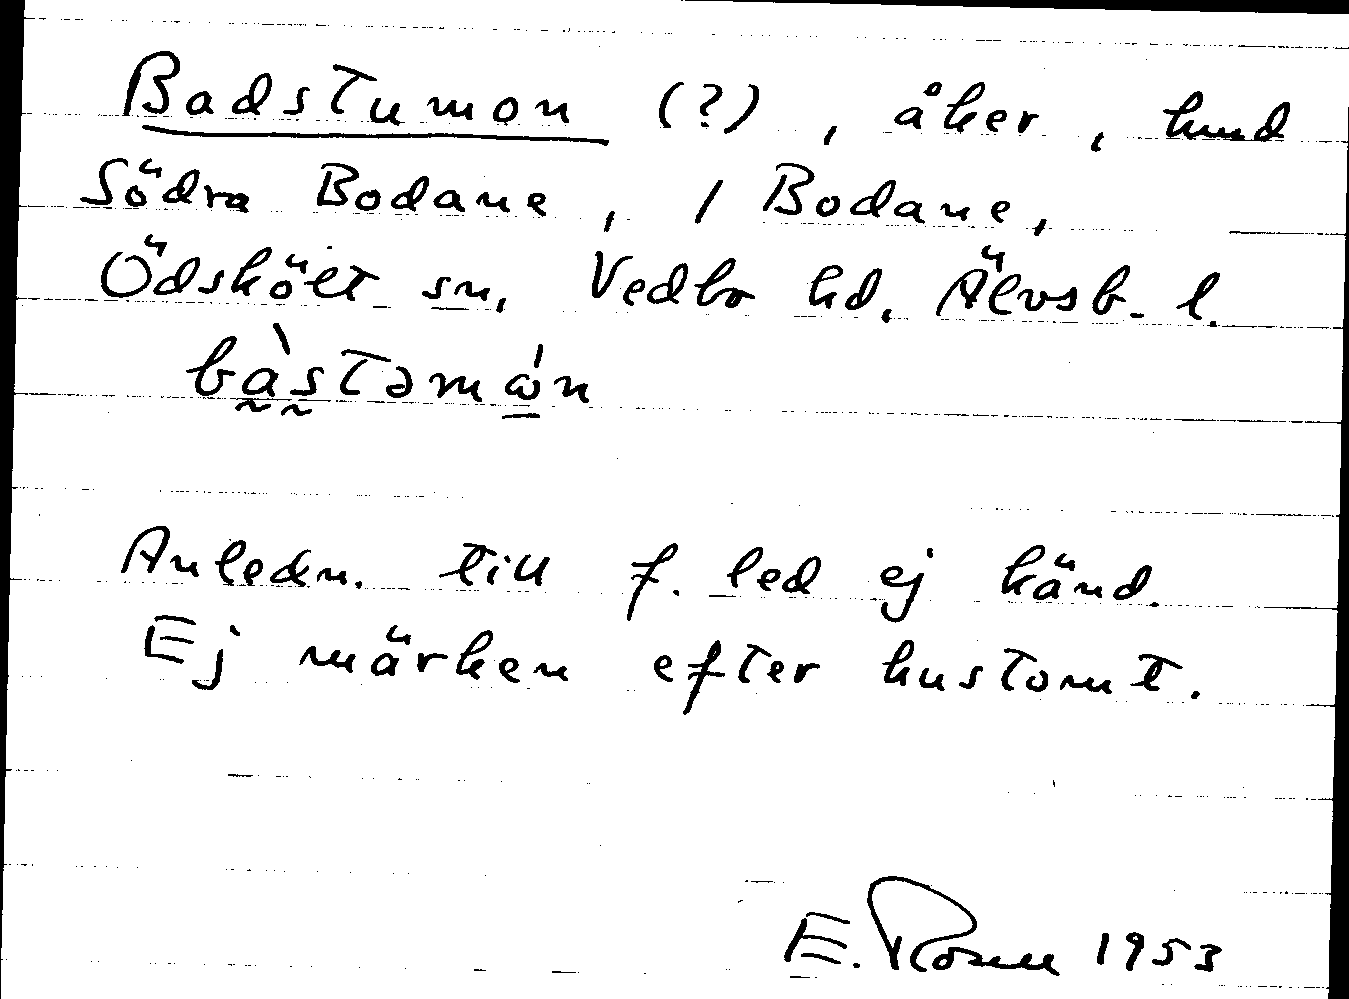 Badstumon (?), åker, hmd
Södra Bodane, / Bodane,
Ödskölt sn, Vedbo hd, Älvsb. l.
bàstəmɷ́n
Anledn. till f. led ej känd.
Ej märken efter hustomt.
E. Rosell 1953